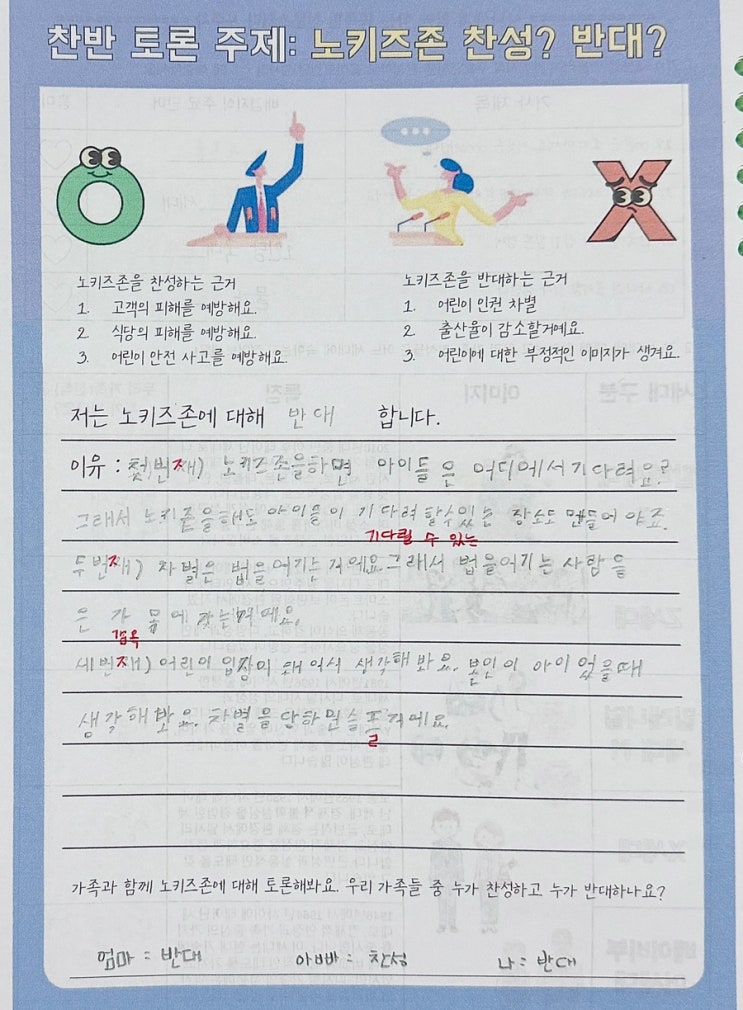 찬반 토론 주제: 노키즈존 찬성? 반대?
노키즈존을 찬성하는 근거
1. 고객의 피해를 예방해요.
2. 식당의 피해를 예방해요.
3. 어린이 안전 사고를 예방해요.
노키즈존을 반대하는 근거
1. 어린이 인권 차별
2. 출산율이 감소할거예요.
3. 어린이에 대한 부정적인 이미지가 생겨요.
저는 노키즈존에 대해 반대 합니다.
이유 : 첫번째) 노키즈존을하면 아이들은 어디에서기다려요?
그래서 노키즞을해도 아이들이 기다려 할수있는 장소도 만들어 야죠.
기다릴 수 있는
두번째) 차별은 법을어기는 거에요그래서 법을어기는 사람들
은 가 몸에 가는거예요.
감옥
세번째) 어린이 입장이 돼 어서 생각해 봐요. 본인이 아이 었을때
생각해봐요. 차별을 당하면슬프거에요.
ㄹ
가족과 함께 노키즈존에 대해 토론해봐요. 우리 가족들 중 누가 찬성하고 누가 반대하나요?
엄마 : 반대 아빠 : 찬성 나 : 반대